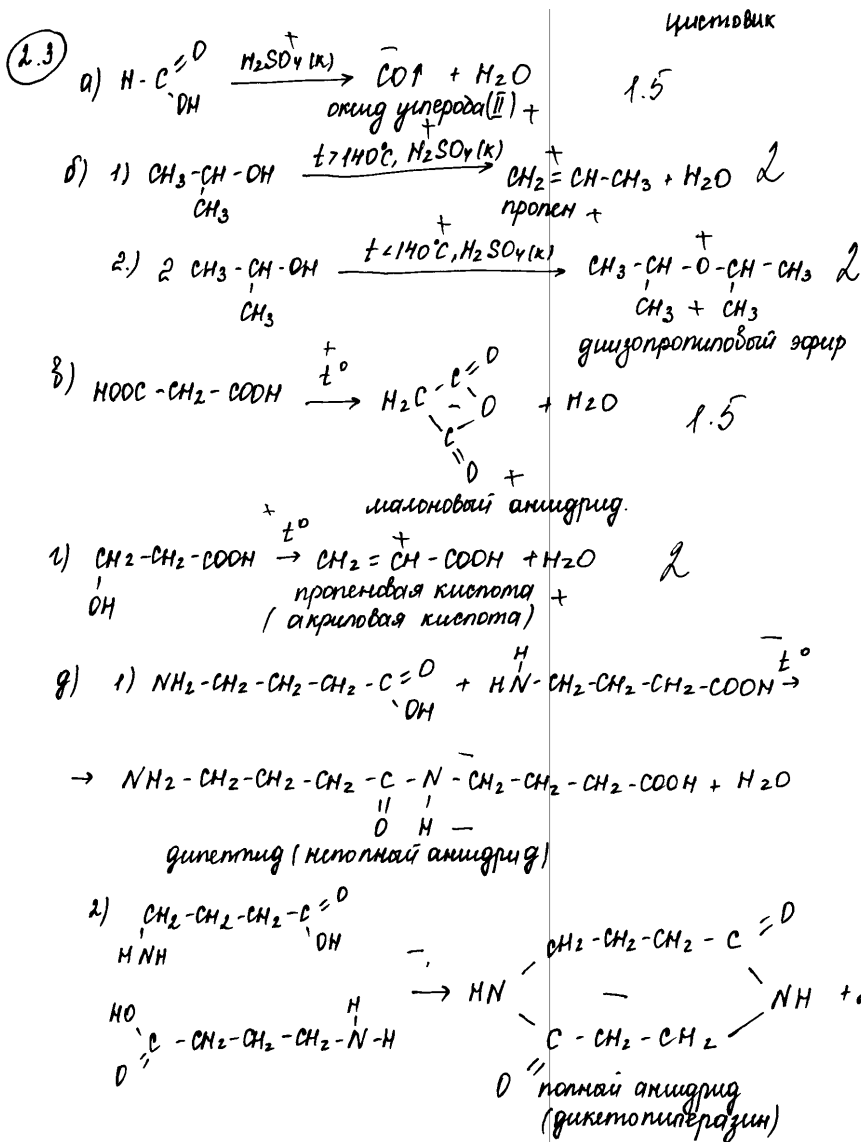 чистовик
2.3
а) H-C=O OH H2SO4(к) → CO↑ + H2O 1.5
оксид углерода(II) +
б) 1) CH3-CH-OH t>140°C, H2SO4(к) → CH2=CH-CH3 + H2O 2
CH3 пропен +
2.) 2 CH3-CH-OH t<140°C, H2SO4(к) → CH3-CH-O-CH-CH3 2
CH3 CH3 + CH3
диизопропиловый эфир
в) HOOC-CH2-COOH t° → H2C C=O O C=O + H2O 1.5
малоновый ангидрид. +
г) CH2-CH2-COOH t° → CH2=CH-COOH + H2O 2
OH пропеновая кислота
(акриловая кислота) +
д) 1) NH2-CH2-CH2-CH2-C=O OH + HN-CH2-CH2-CH2-COOH t° →
H
→ NH2-CH2-CH2-CH2-C-N-CH2-CH2-CH2-COOH + H2O
O H —
дипептид (неполный ангидрид)
2) CH2-CH2-CH2-C=O OH
HNH
HO O=C-CH2-CH2-CH2-N-H H → HN CH2-CH2-CH2-C=O NH +
C-CH2-CH2
O полный ангидрид
(дикетопиперазин)